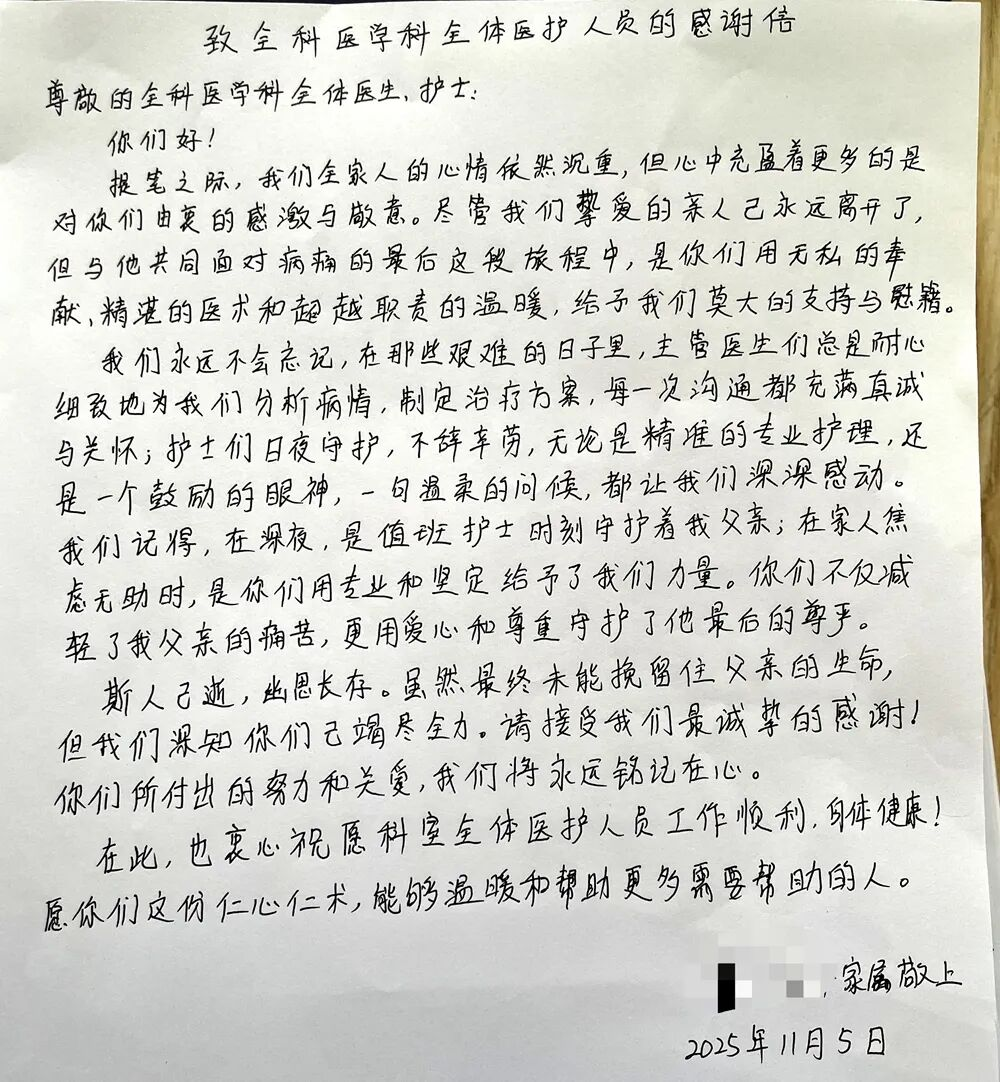 致全科医学科全体医护人员的感谢信
尊敬的全科医学科全体医生、护士：
你们好！
提笔之际，我们全家人的心情依然沉重，但心中充盈着更多的是
对你们由衷的感激与敬意。尽管我们挚爱的亲人已永远离开了，
但与他共同面对病痛的最后这段旅程中，是你们用无私的奉
献、精湛的医术和超越职责的温暖，给予我们莫大的支持与慰籍。
我们永远不会忘记，在那些艰难的日子里，主管医生们总是耐心
细致地为我们分析病情，制定治疗方案，每一次沟通都充满真诚
与关怀；护士们日夜守护，不辞辛劳，无论是精准的专业护理，还
是一个鼓励的眼神，一句温柔的问候，都让我们深深感动。
我们记得，在深夜，是值班护士时刻守护着我父亲；在家人焦
虑无助时，是你们用专业和坚定给予了我们力量。你们不仅减
轻了我父亲的痛苦，更用爱心和尊重守护了他最后的尊严。
斯人已逝，幽思长存。虽然最终未能挽留住父亲的生命，
但我们深知你们已竭尽全力。请接受我们最诚挚的感谢！
你们所付出的努力和关爱，我们将永远铭记在心。
在此，也衷心祝愿科室全体医护人员工作顺利，身体健康！
愿你们这份仁心仁术，能够温暖和帮助更多需要帮助的人。
家属敬上
2025年11月5日